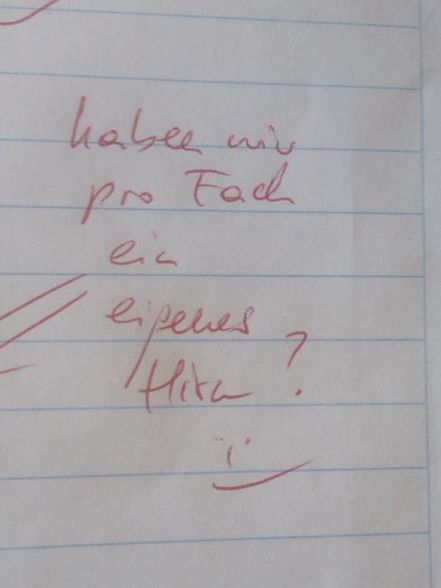 haben wir
pro Fach
ein
eigenes
Hirn?
:)